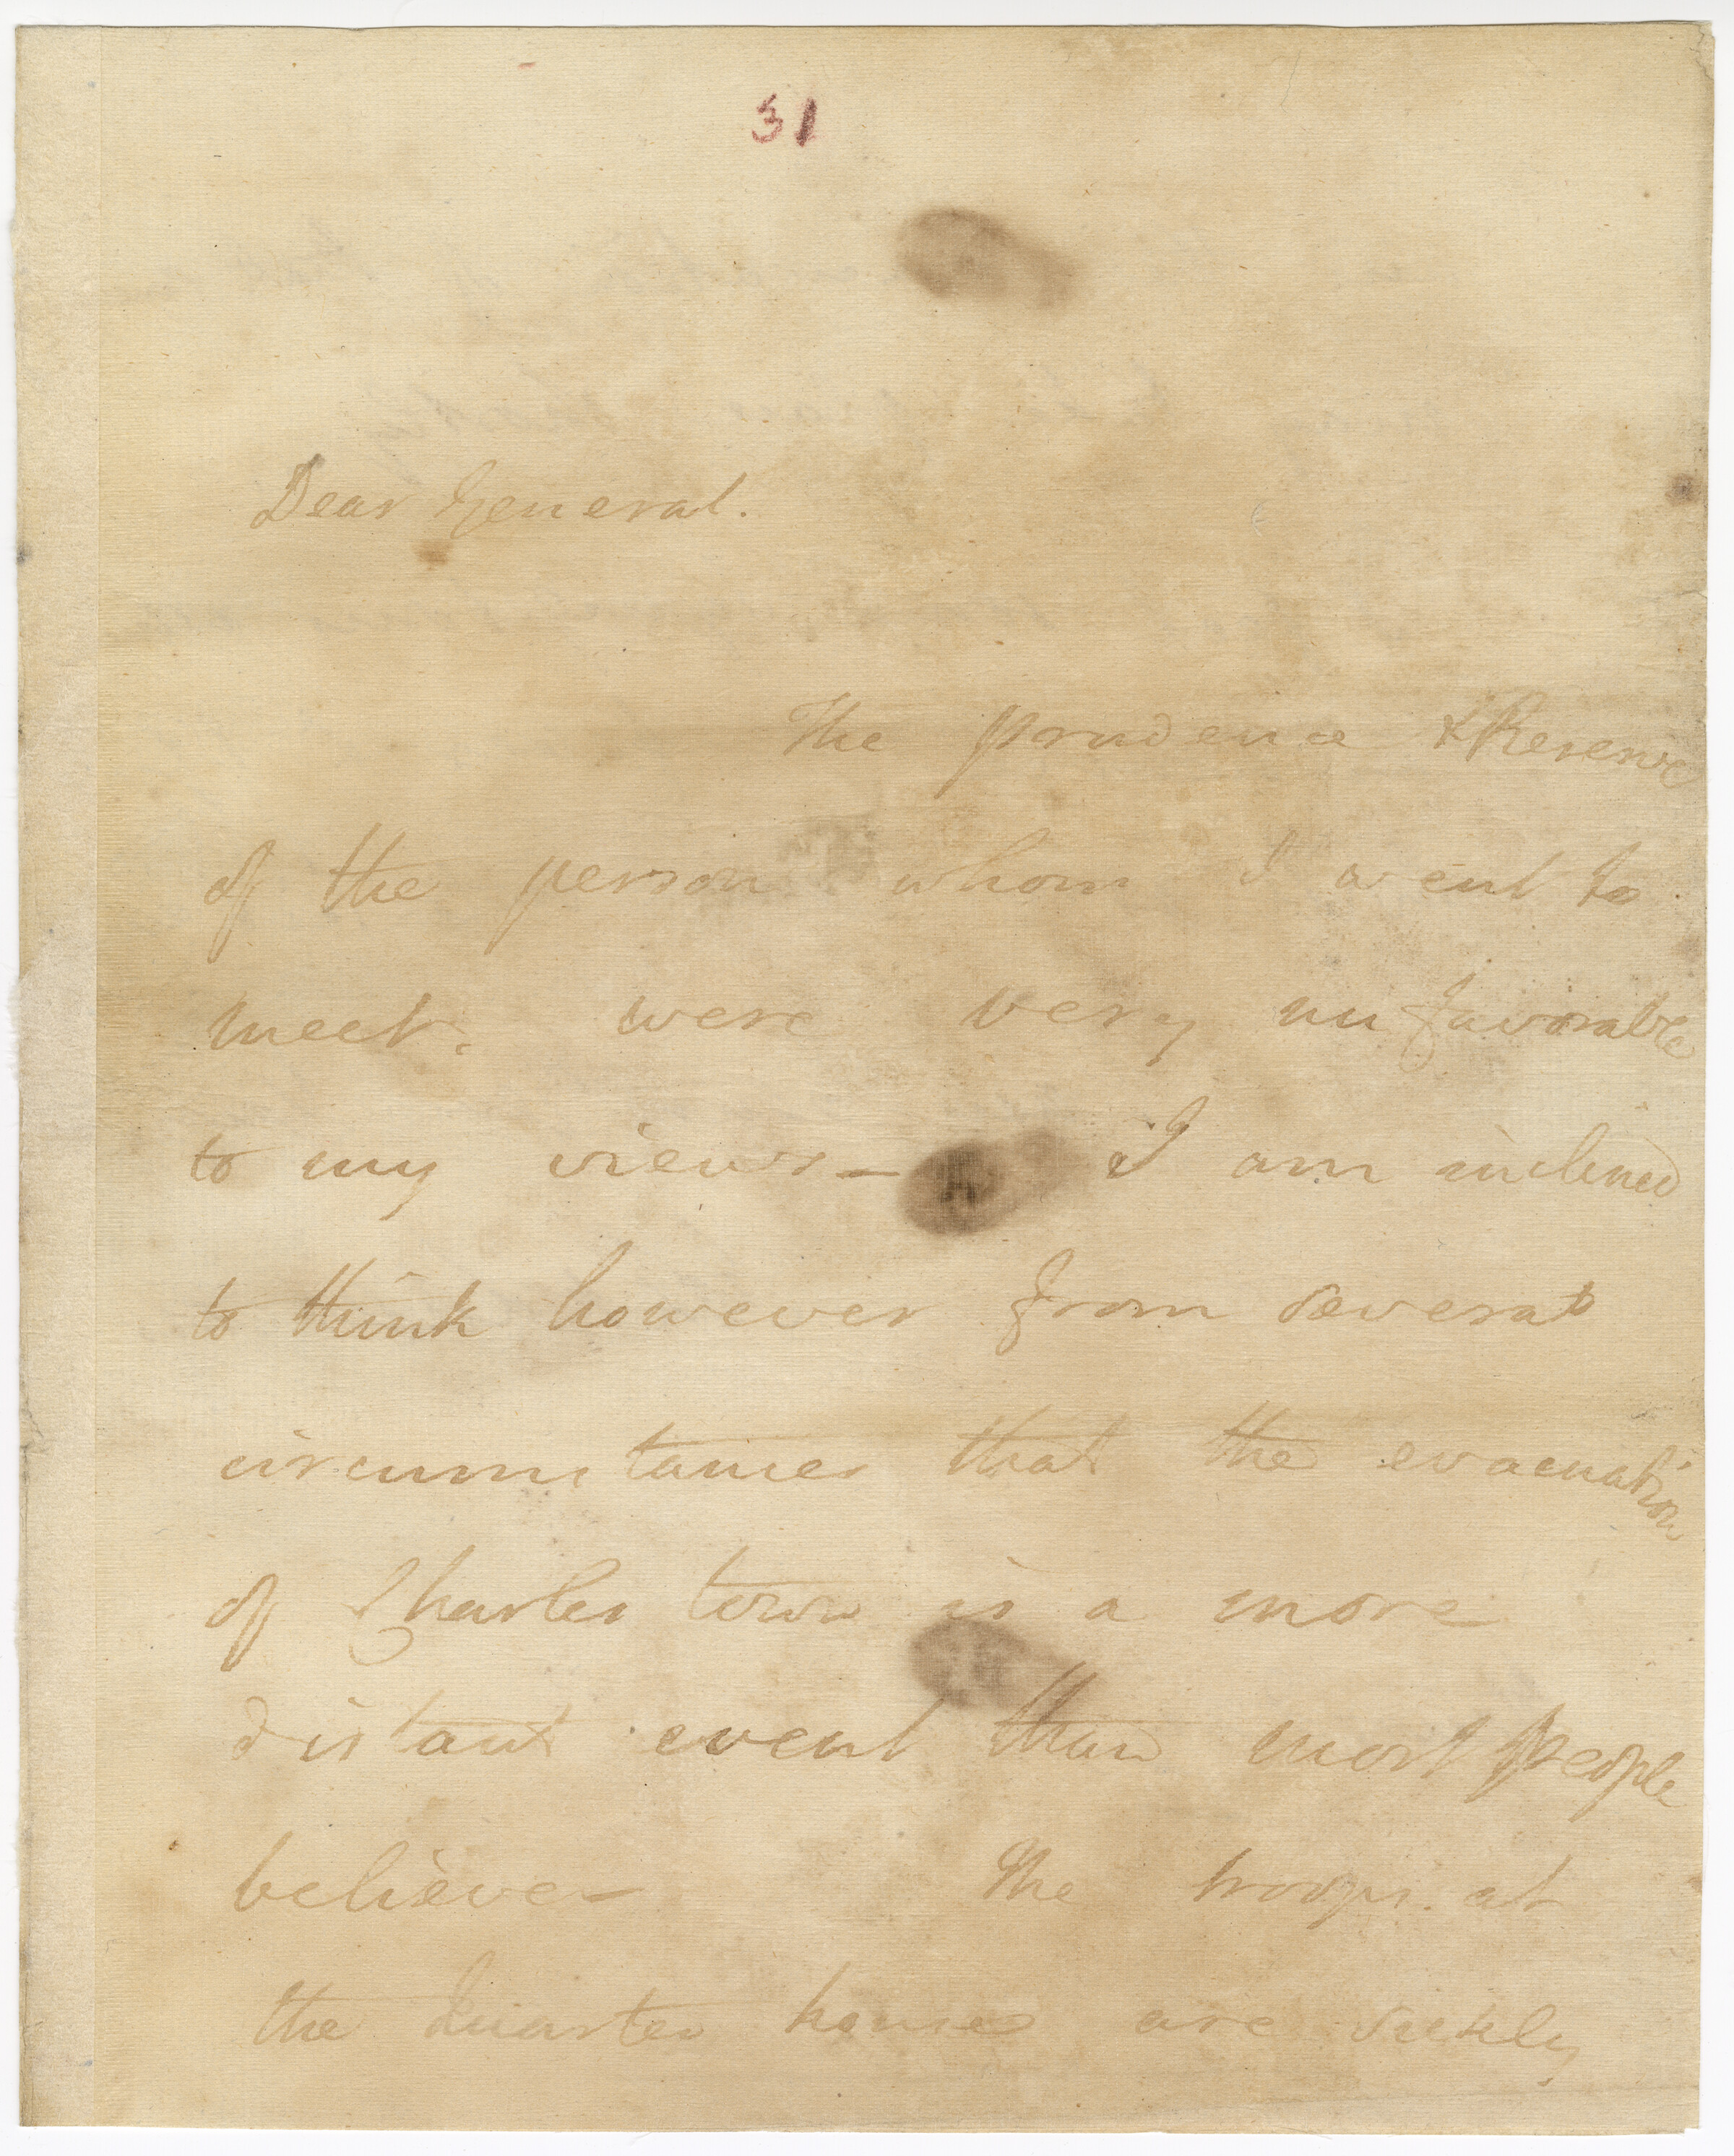 31
Dear General.
The prudence & Reserve
of the person whom I went to
meet. were very unfavorable
to my views— I am inclined
to think however from several
circumstances that the evacuation
of Charles town is a more
distant event than most people
believe— The troops. at
the Quarter house are sickly